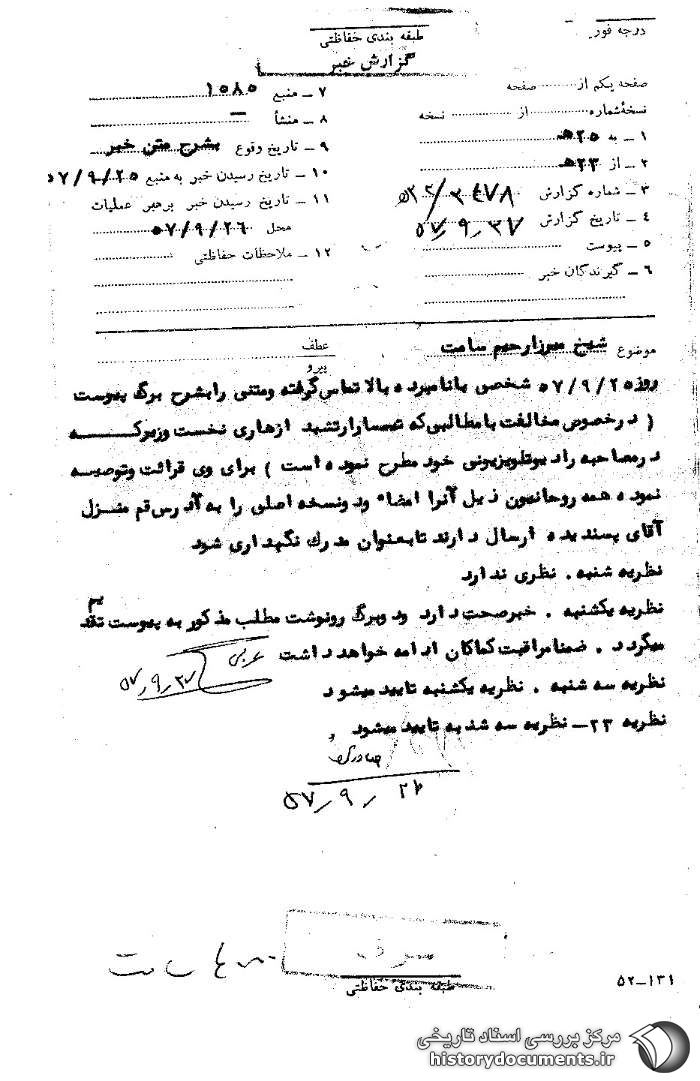 درجه فور
طبقه بندی حفاظتی
گزارش خبر
صفحه یکم از ........ صفحه
نسخهٔ شماره ........ از ........ نسخه
۱ ـ به ۲۵ ه‍
۲ ـ از ۲۳ ه‍
۳ ـ شماره گزارش
۴ ـ تاریخ گزارش
۵ ـ پیوست
۶ ـ گیرندگان خبر
۷ ـ منبع ۱۰۸۵
۸ ـ منشأ ـ
۹ ـ تاریخ وقوع بشرح متن خبر
۱۰ ـ تاریخ رسیدن خبر به منبع ۵۷/۹/۲۵
۱۱ ـ تاریخ رسیدن خبر برهبر عملیات
محل ۵۷/۹/۲۶
۱۲ ـ ملاحظات حفاظتی
موضوع شیخ میرزا رحیم سامت
عطف
پیرو
روز ۵۷/۹/۲۵ شخصی با نامبرده بالا تماس گرفته ومتنی را بشرح برگ پیوست
( در خصوص مخالفت با مطالبی که تیمسار ارتشبد ازهاری نخست وزیر کـه
در مصاحبه رادیو تلویزیونی خود مطرح نموده است ) برای وی قرائت وتوصیـه
نموده همه روحانیون ذیل آنرا امضاء ودونسخه اصلی را به آدرس قم منـزل
آقای پسندیده ارسال دارند تا بعنوان مدرك نگهداری شود
نظریه شنبه . نظری ندارد
نظریه یکشنبه . خبر صحت دارد ودوبرگ رونوشت مطلب مذکور به پیوست تقدیم
میگردد . ضمنا مراقبت کماکان ادامه خواهد داشت
نظریه سه شنبه . نظریه یکشنبه تایید میشود
نظریه ۲۳ ـ نظریه سه شنبه تایید میشود
۵۷٫۹٫۲۶
سری
طبقه بندی حفاظتی
۵۲ـ۱۳۱
مرکز بررسی اسناد تاریخی
historydocuments.ir